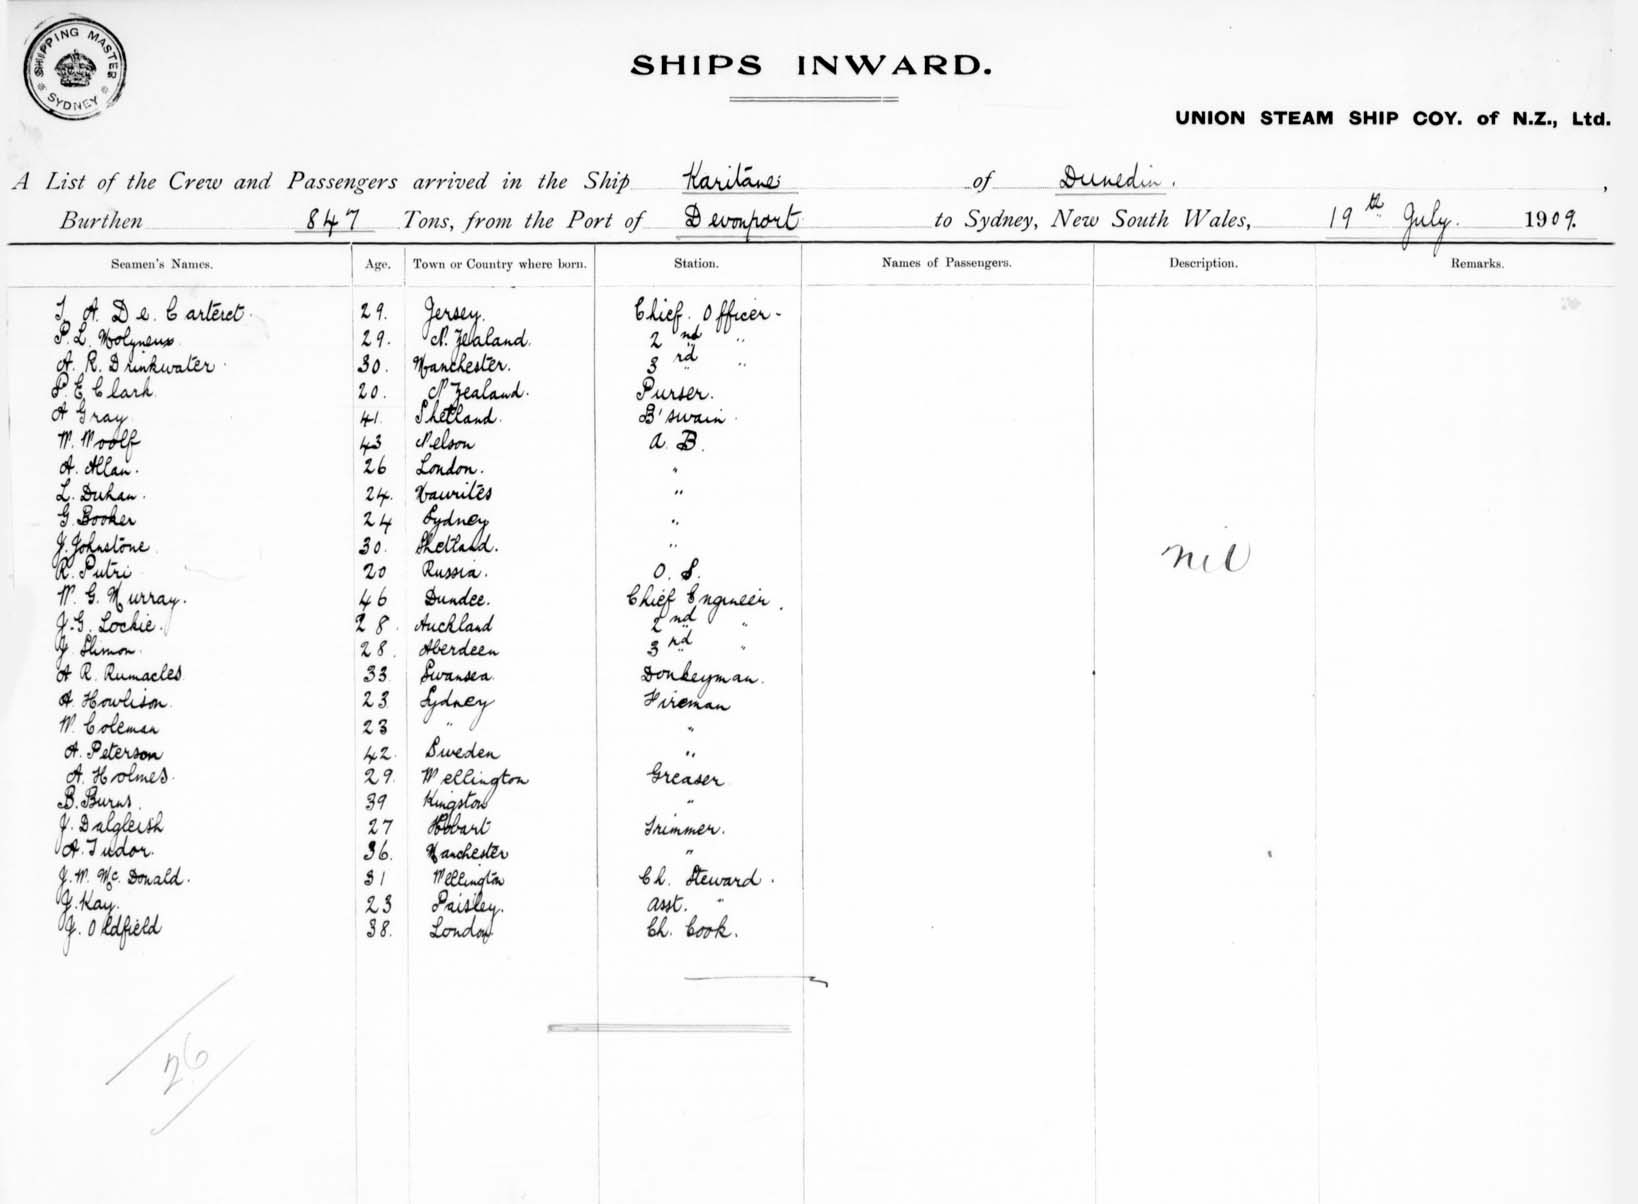 SHIPPING MASTER
SYDNEY
SHIPS INWARD.
UNION STEAM SHIP COY. of N.Z., Ltd.
A List of the Crew and Passengers arrived in the Ship Karitane of Dunedin.,
Burthen 847 Tons, from the Port of Devonport to Sydney, New South Wales, 19th July. 1909.
Seamen's Names. Age. Town or Country where born. Station. Names of Passengers. Description. Remarks.
A. De. Carteret. 29. Jersey. Chief. Officer-
P. L. Molyneux 29. N. Zealand. 2nd "
A. R. Drinkwater. 30. Manchester. 3rd "
P. E. Clark. 20. N Zealand. Purser.
A Gray 41. Shetland. B'swain.
W. Woolf 43 Nelson A. B.
A. Allan. 26 London. "
L. Duhan. 24. "
G. Booker 24 Sydney "
J. Johnstone 30. Shetland. "
R. Putri 20 Russia. O. S.
W. G. Murray. 46 Dundee. Chief Engineer.
J. G. Lockie. 28. Auckland 2nd "
J. Slimon. 28. Aberdeen 3rd "
A R. Rumacles 33 Swansea. Donkeyman.
A. Howlison. 23 Sydney Fireman
W. Coleman 23 " "
A. Peterson 42. Sweden "
A. Holmes. 29. Wellington Greaser
B. Burns. 39 Kingston "
J. Dalgleish 27 Hobart Trimmer.
A. Tudor. 36. Manchester "
J. W. Mc. Donald. 31 Wellington Ch. Steward.
J. Kay. 23 Paisley. Asst. "
J. Oldfield 38. London Ch. Cook.
nil
26